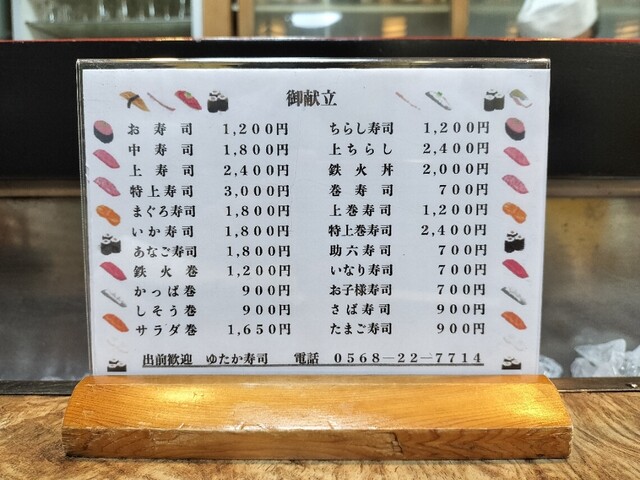 御献立
お寿司 1,200円
中寿司 1,800円
上寿司 2,400円
特上寿司 3,000円
まぐろ寿司 1,800円
いか寿司 1,800円
あなご寿司 1,800円
鉄火巻 1,200円
かっぱ巻 900円
しそう巻 900円
サラダ巻 1,650円
ちらし寿司 1,200円
上ちらし 2,400円
鉄火丼 2,000円
巻寿司 700円
上巻寿司 1,200円
特上巻寿司 2,400円
助六寿司 700円
いなり寿司 700円
お子様寿司 700円
さば寿司 900円
たまご寿司 900円
出前歓迎 ゆたか寿司 電話 0568—22—7714